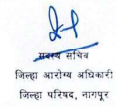 सदस्य सचिव
जिल्हा आरोग्य अधिकारी
जिल्हा परिषद, नागपूर